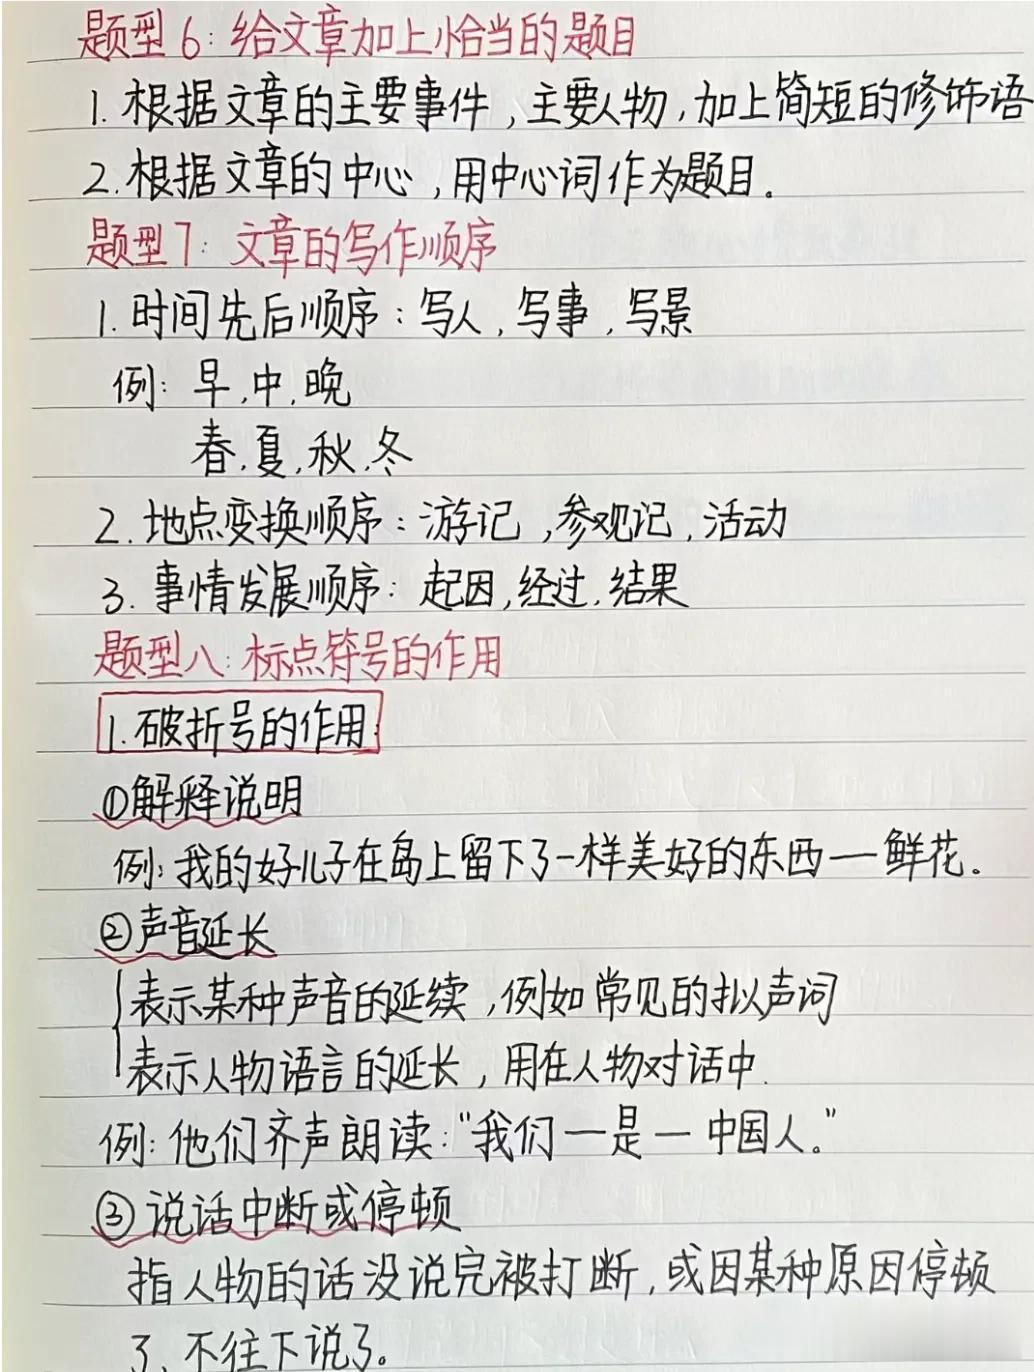 题型6：给文章加上恰当的题目
1.根据文章的主要事件，主要人物，加上简短的修饰语
2.根据文章的中心，用中心词作为题目。
题型7：文章的写作顺序
1.时间先后顺序：写人，写事，写景
例：早，中，晚
春，夏，秋，冬
2.地点变换顺序：游记，参观记，活动
3.事情发展顺序：起因，经过，结果
题型八：标点符号的作用
1.破折号的作用
①解释说明
例：我的好儿子在岛上留下了一样美好的东西——鲜花。
②声音延长
表示某种声音的延续，例如常见的拟声词
表示人物语言的延长，用在人物对话中.
例：他们齐声朗读：“我们—是—中国人。”
③说话中断或停顿
指人物的话没说完被打断，或因某种原因停顿
了，不往下说了。